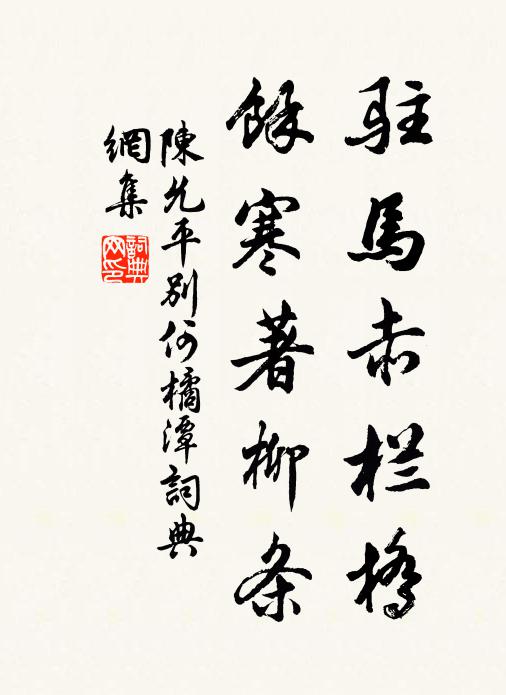 驻馬赤栏橋
餘寒著柳条
陳允平别何橘潭詞典
網集
詞典网印